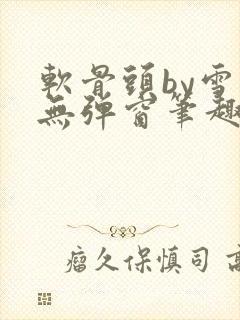 軟骨頭by雪
無彈窗筆趣
瘤久保慎司 高